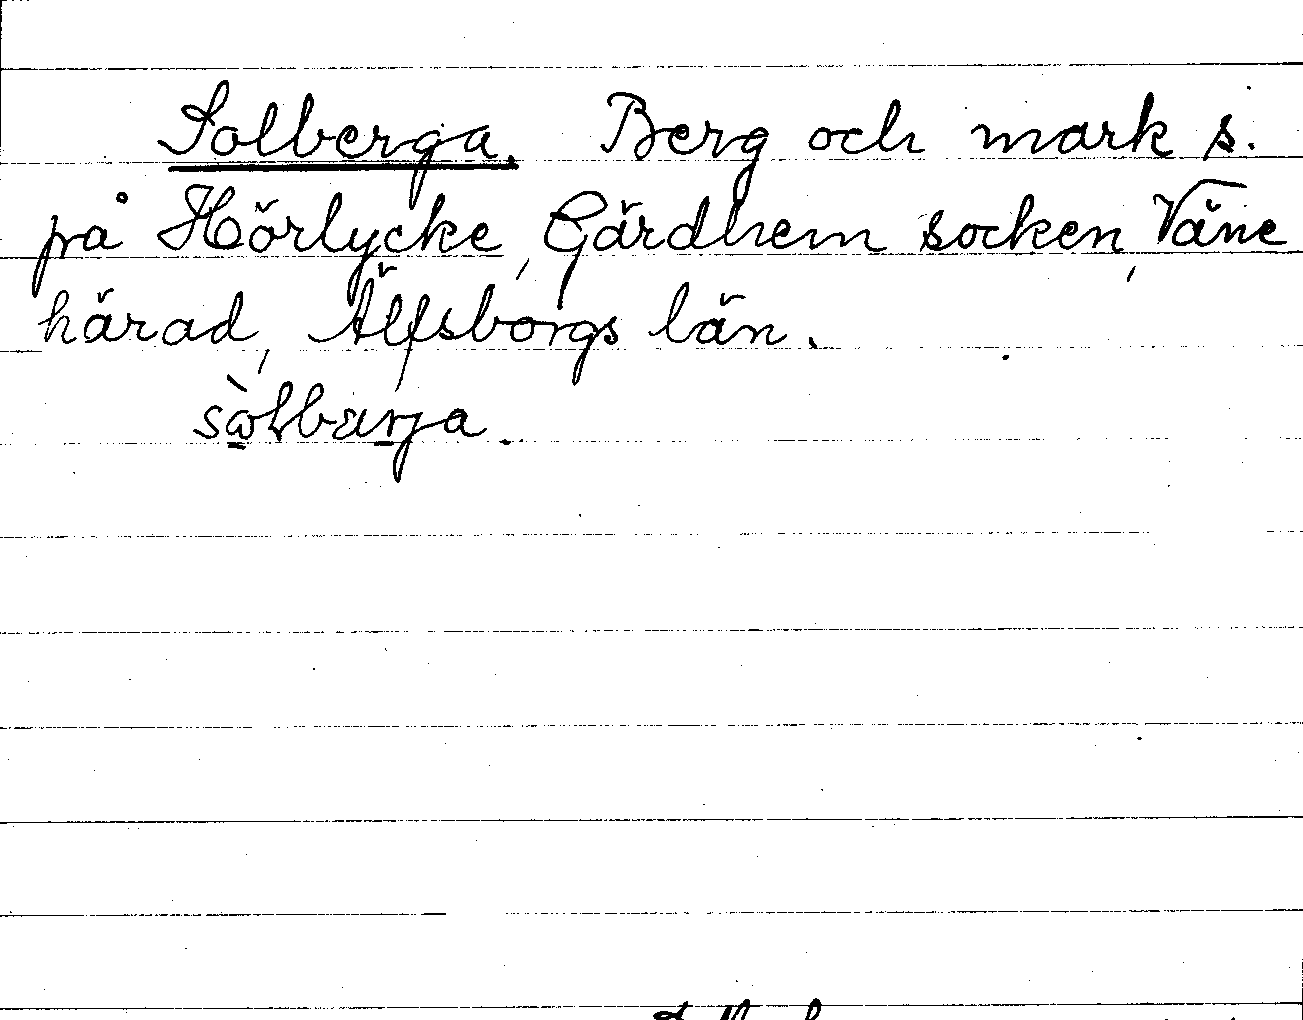 Solberga. Berg och mark s.
på Hörlycke, Gärdhem socken, Väne
härad, Älfsborgs län.